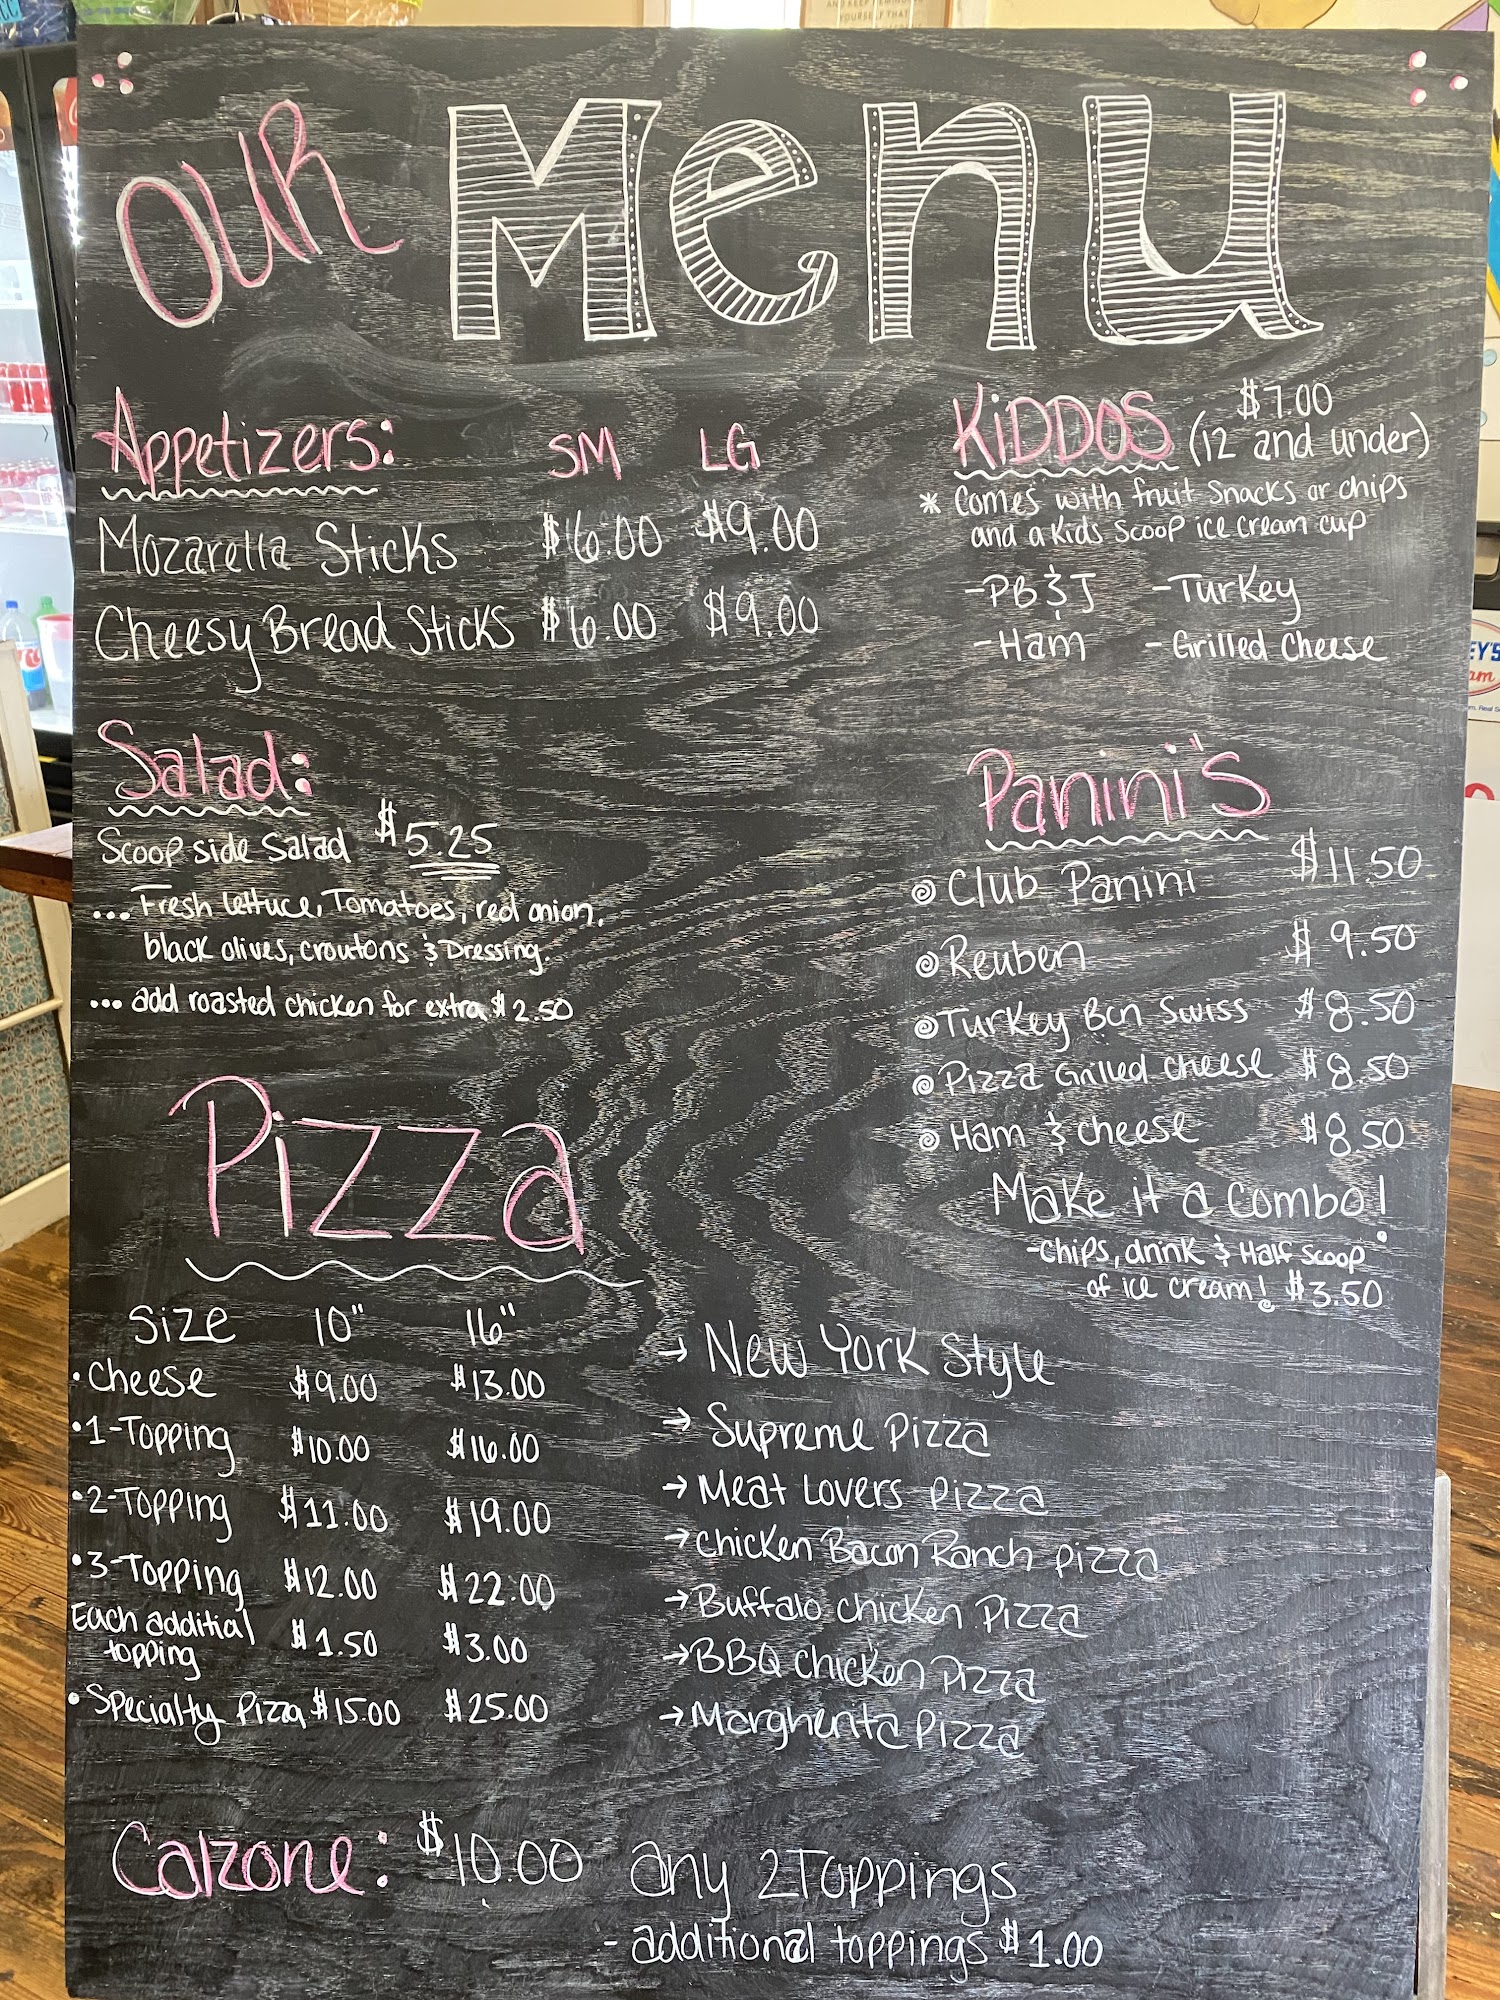 OUR Menu
Appetizers: SM LG
Mozarella Sticks $6.00 $9.00
Cheesy Bread Sticks $6.00 $9.00
Salad:
Scoop side Salad $5.25
... Fresh lettuce, Tomatoes, red onion,
black olives, croutons & Dressing.
... add roasted chicken for extra $2.50
KiDDOS $7.00
(12 and under)
* Comes with fruit snacks or chips
and a kids scoop ice cream cup
-PB&J -Turkey
-Ham -Grilled Cheese
Panini's
Club Panini $11.50
Reuben $9.50
Turkey Bcn Swiss $8.50
Pizza Grilled cheese $8.50
Ham & cheese $8.50
Make it a combo!
-chips, drink & Half scoop
of ice cream! $3.50
Pizza
Size 10" 16"
•Cheese $9.00 $13.00
•1-Topping $10.00 $16.00
•2-Topping $11.00 $19.00
•3-Topping $12.00 $22.00
Each additial
topping $1.50 $3.00
•Specialty Pizza $15.00 $25.00
→ New York Style
→ Supreme Pizza
→ Meat Lovers Pizza
→ Chicken Bacon Ranch pizza
→ Buffalo chicken Pizza
→ BBQ Chicken Pizza
→ Margherita Pizza
Calzone: $10.00 any 2 Toppings
- additional toppings $1.00